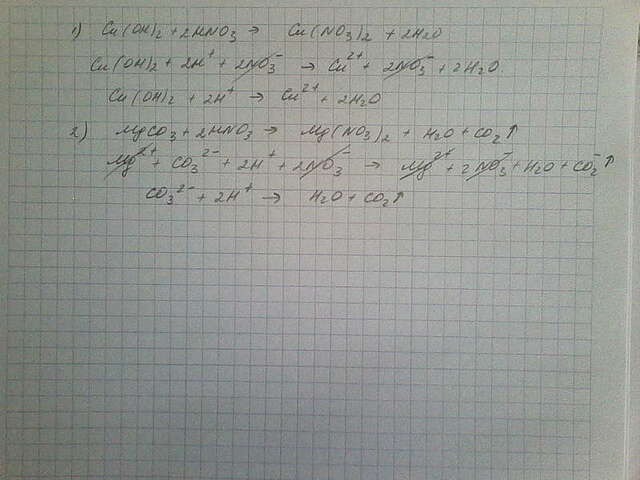 1) Cu(OH)2 + 2HNO3 → Cu(NO3)2 + 2H2O
Cu(OH)2 + 2H⁺ + 2NO3⁻ → Cu²⁺ + 2NO3⁻ + 2H2O
Cu(OH)2 + 2H⁺ → Cu²⁺ + 2H2O
2) MgCO3 + 2HNO3 → Mg(NO3)2 + H2O + CO2↑
Mg²⁺ + CO3²⁻ + 2H⁺ + 2NO3⁻ → Mg²⁺ + 2NO3⁻ + H2O + CO2⁻↑
CO3²⁻ + 2H⁺ → H2O + CO2↑